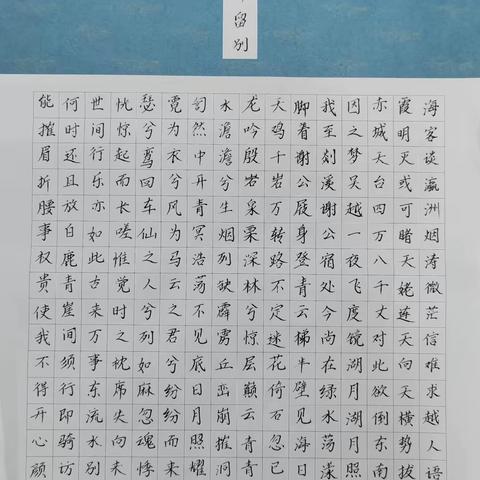 留别
海客谈瀛洲烟涛微茫信难求越人语
霞明灭或可睹天姥连天向天横势拔
赤城天台四万八千丈对此欲倒东南
因之梦吴越一夜飞度镜湖月湖月照
我至剡溪谢公宿处今尚在绿水荡漾
脚着谢公屐身登青云梯半壁见海日
天鸡千岩万转路不定迷花倚石忽已
龙吟殷岩泉栗深林兮惊层巅云青青
水澹澹兮生烟列缺霹雳丘峦崩摧洞
訇然中开青冥浩荡不见底日月照耀
霓为衣兮风为马云之君兮纷纷而来
瑟兮鸾回车仙之人兮列如麻忽魂悸
恍惊起而长嗟惟觉时之枕席失向来
世间行乐亦如此古来万事东流水别
何时还且放白鹿青崖间须行即骑访
能摧眉折腰事权贵使我不得开心颜